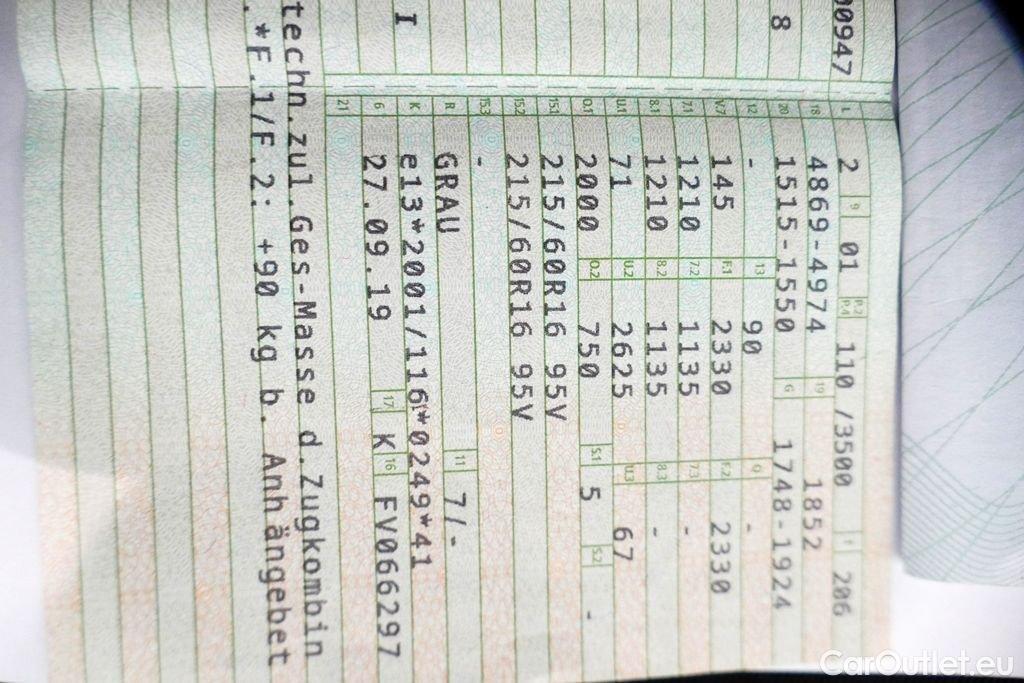 00947 L 2 9 01 P.2 P.4 110 /3500 T 206
18 4869-4974 19 1852
8 20 1515-1550 G 1748-1924
12 - 13 90 Q -
V.7 145 F.1 2330 F.2 2330
7.1 1210 7.2 1135 7.3 -
8.1 1210 8.2 1135 8.3 -
U.1 71 U.2 2625 U.3 67
O.1 2000 O.2 750 S.1 5 S.2 -
15.1 215/60R16 95V
15.2 215/60R16 95V
15.3 -
R GRAU 11 7/-
I K e13*2001/116*0249*41
6 27.09.19 17 K 16 FV066297
21
techn.zul.Ges-Masse d.Zugkombin
.*F.1/F.2: +90 kg b. Anhängebet
CarOutlet.eu